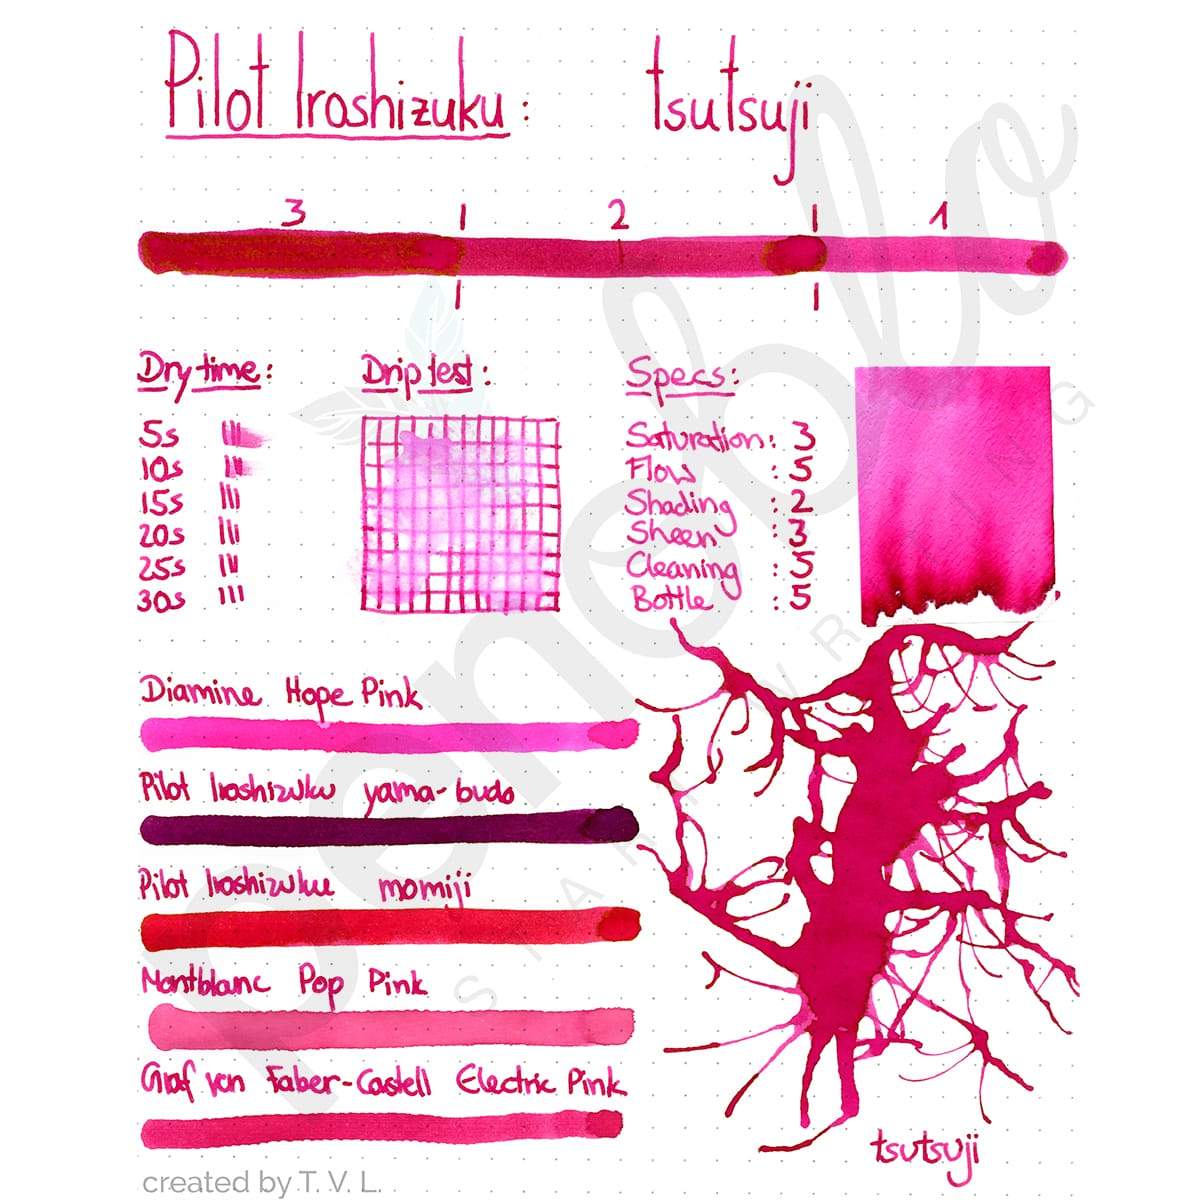 Pilot Iroshizuku: tsutsuji
3 | 2 | 1
Dry time:
5s
10s
15s
20s
25s
30s
Drip test:
Specs:
Saturation: 3
Flow : 5
Shading : 2
Sheen : 3
Cleaning : 5
Bottle : 5
Diamine Hope Pink
Pilot Iroshizuku yama-budo
Pilot Iroshizuku momiji
Montblanc Pop Pink
Graf von Faber-Castell Electric Pink
tsutsuji
created by T. V. L.
penoblo